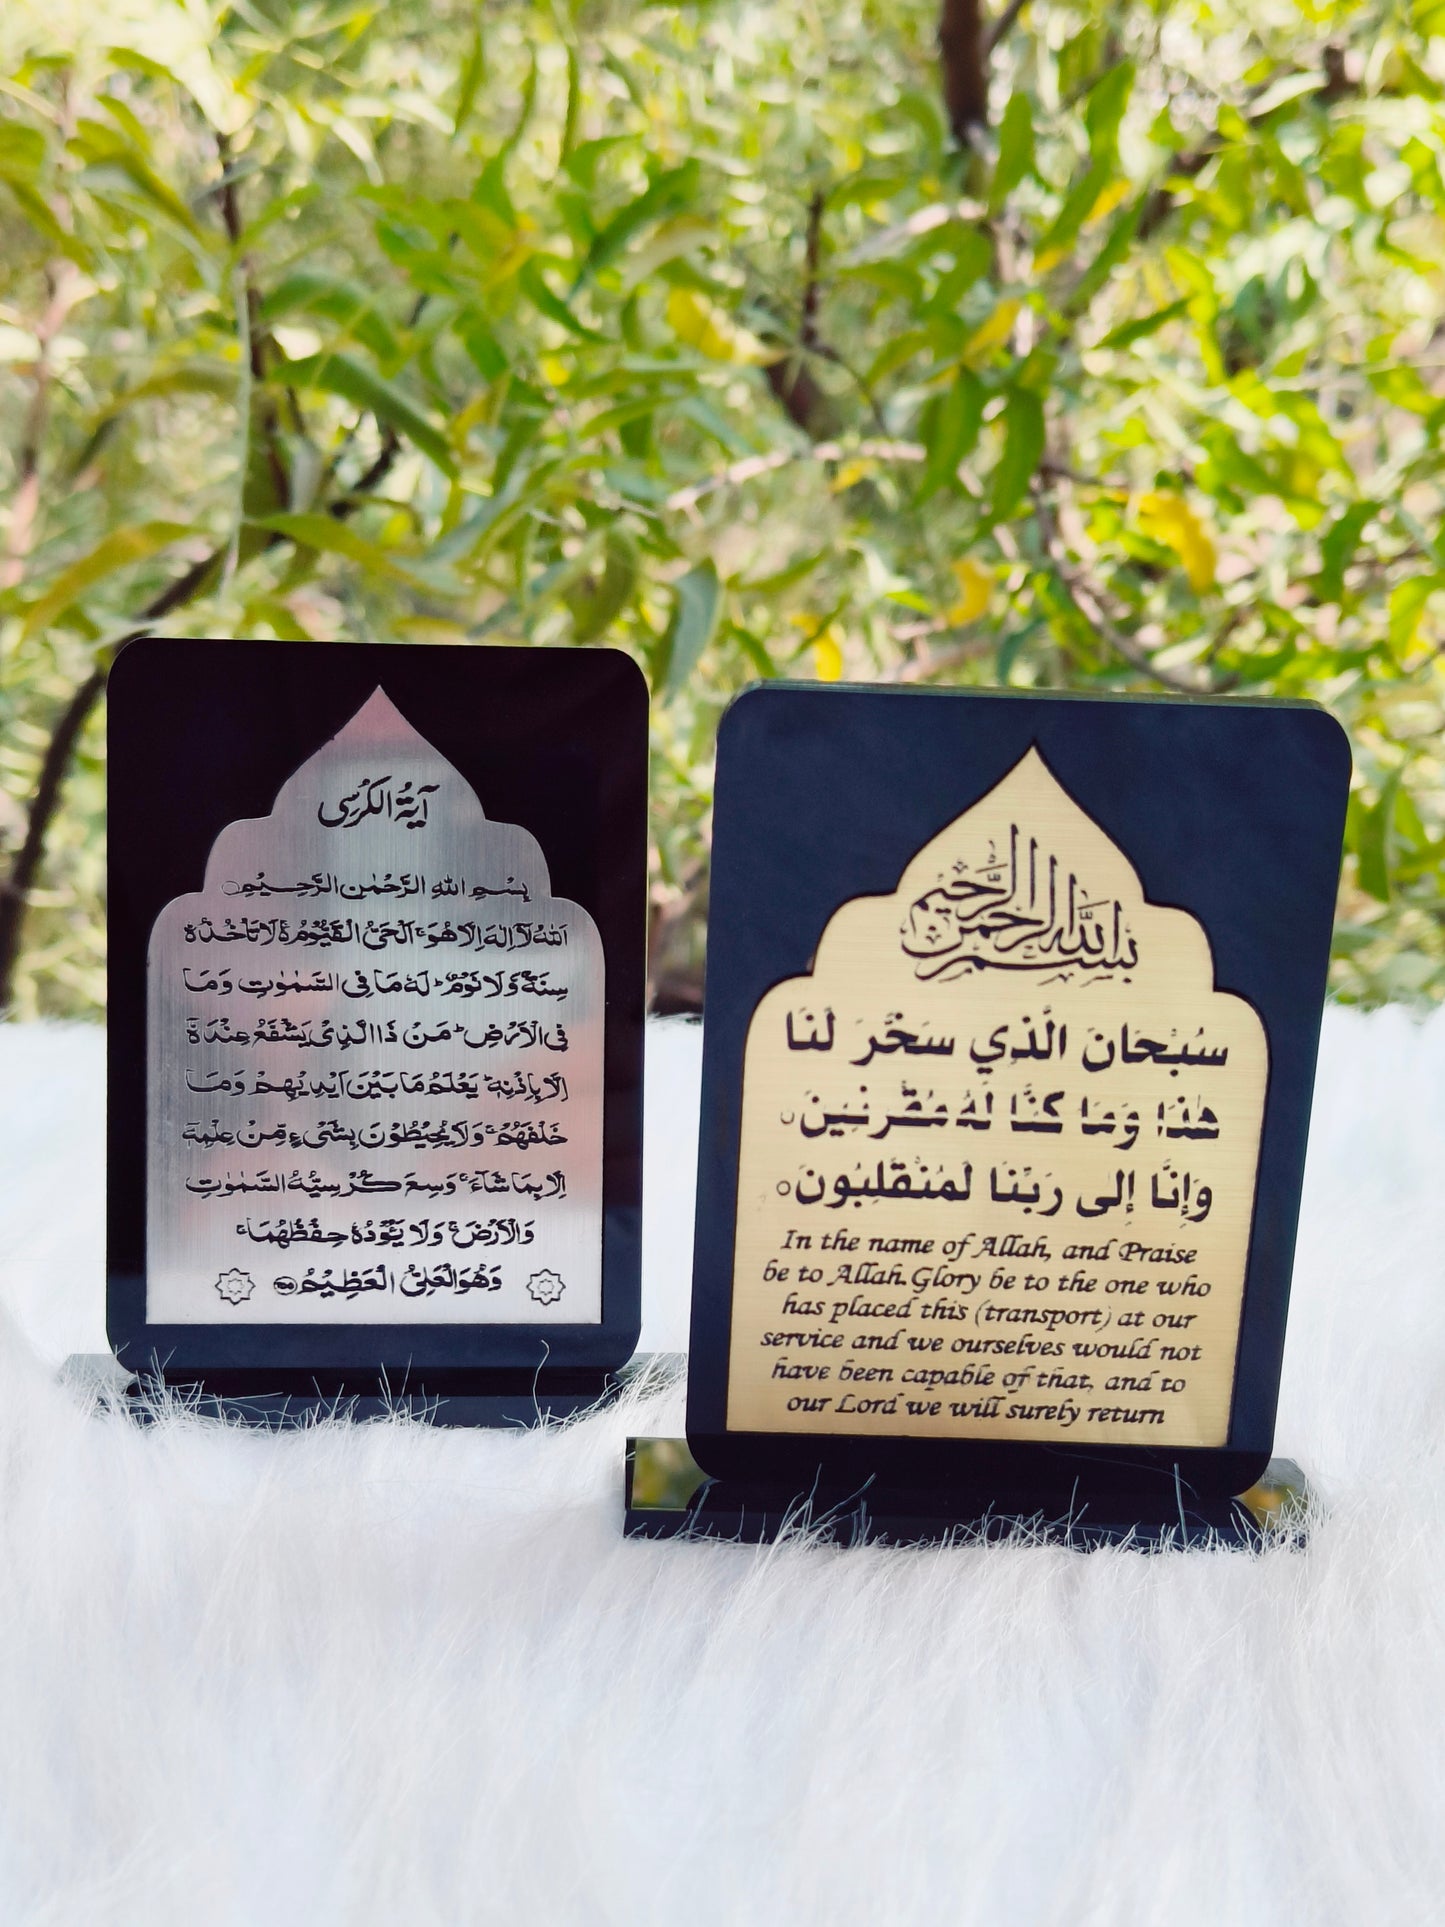 آيَةُ الْكُرْسِى
بِسْمِ اللهِ الرَّحْمٰنِ الرَّحِيْمِ
اَللهُ لَآ اِلٰهَ اِلَّا هُوَ ۚ اَلْحَىُّ الْقَيُّوْمُ ۚ لَا تَاْخُذُهٗ
سِنَةٌ وَّلَا نَوْمٌ ؕ لَهٗ مَا فِى السَّمٰوٰتِ وَمَا
فِى الْاَرْضِ ؕ مَنْ ذَا الَّذِىْ يَشْفَعُ عِنْدَهٗۤ
اِلَّا بِاِذْنِهٖ ؕ يَعْلَمُ مَا بَيْنَ اَيْدِيْهِمْ وَمَا
خَلْفَهُمْ ۚ وَلَا يُحِيْطُوْنَ بِشَىْءٍ مِّنْ عِلْمِهٖۤ
اِلَّا بِمَا شَآءَ ۚ وَسِعَ كُرْسِيُّهُ السَّمٰوٰتِ
وَالْاَرْضَ ۚ وَلَا يَئُوْدُهٗ حِفْظُهُمَا ۚ
وَهُوَ الْعَلِىُّ الْعَظِيْمُ
بسم الله الرحمن الرحيم
سُبْحَانَ الَّذِي سَخَّرَ لَنَا
هٰذَا وَمَا كُنَّا لَهُ مُقْرِنِينَ ○
وَإِنَّا إِلَى رَبِّنَا لَمُنْقَلِبُونَ ○
In the name of Allah, and Praise
be to Allah. Glory be to the one who
has placed this (transport) at our
service and we ourselves would not
have been capable of that, and to
our Lord we will surely return